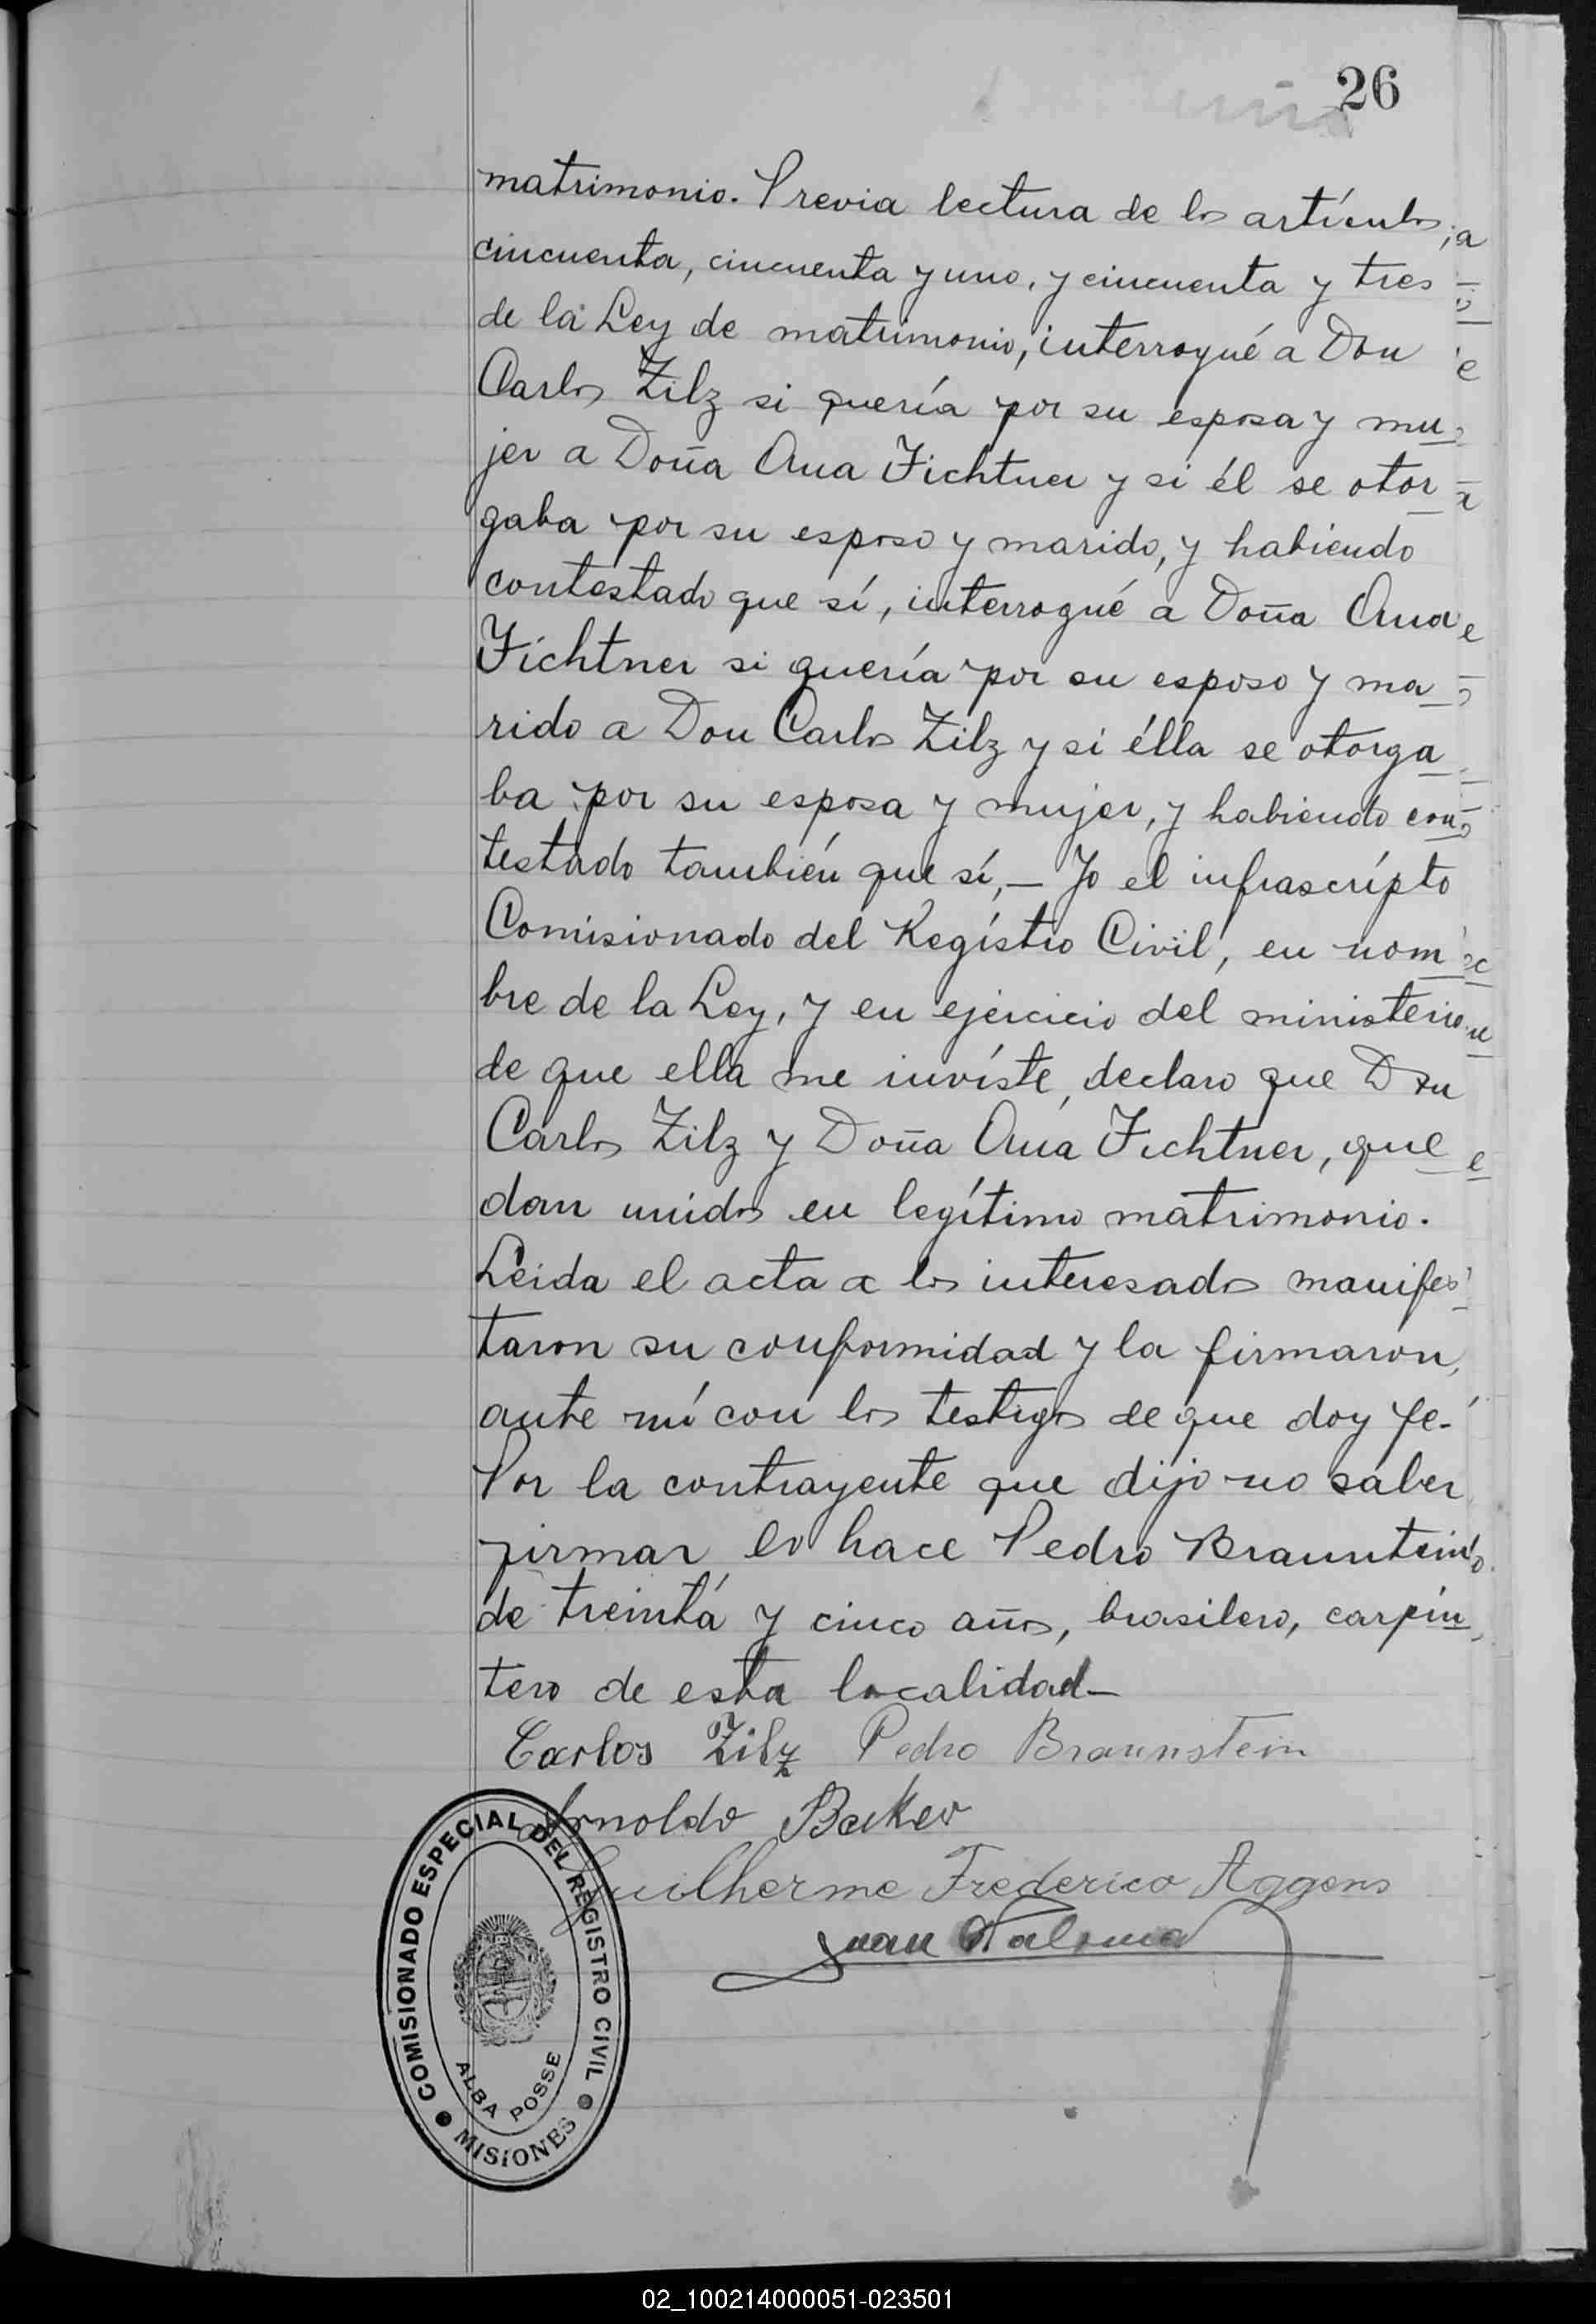 26
matrimonio. Previa lectura de los artículos
cincuenta, cincuenta y uno, y cincuenta y tres
de la Ley de matrimonio, interrogué a Don
Carlos Zilz si quería por su esposa y mu
jer a Doña Ana Fichtner y si él se otor
gaba por su esposo y marido, y habiendo
contestado que sí, interrogué a Doña Ana
Fichtner si quería por su esposo y ma
rido a Don Carlos Zilz y si élla se otorga
ba por su esposa y mujer, y habiendo con
testado también que sí, — Yo el infrascrípto
Comisionado del Regístro Civil, en nom
bre de la Ley, y en ejercicio del ministerio
de que ella me invíste, declaro que Don
Carlos Zilz y Doña Ana Fichtner, que
dan unidos en legítimo matrimonio.
Leida el acta a los interesados manifes
taron su conformidad y la firmaron,
ante mí con los testigos de que doy fe.
Por la contrayente que dijo no saber
firmar lo hace Pedro Braunstein
de treinta y cinco años, brasilero, carpin
tero de esta localidad—
Carlos Zilz Pedro Braunstein
Arnoldo Beker
Guilherme Frederico Aggens
Juan
COMISIONADO ESPECIAL DEL REGISTRO CIVIL
ALBA POSSE
MISIONES
02_100214000051-023501